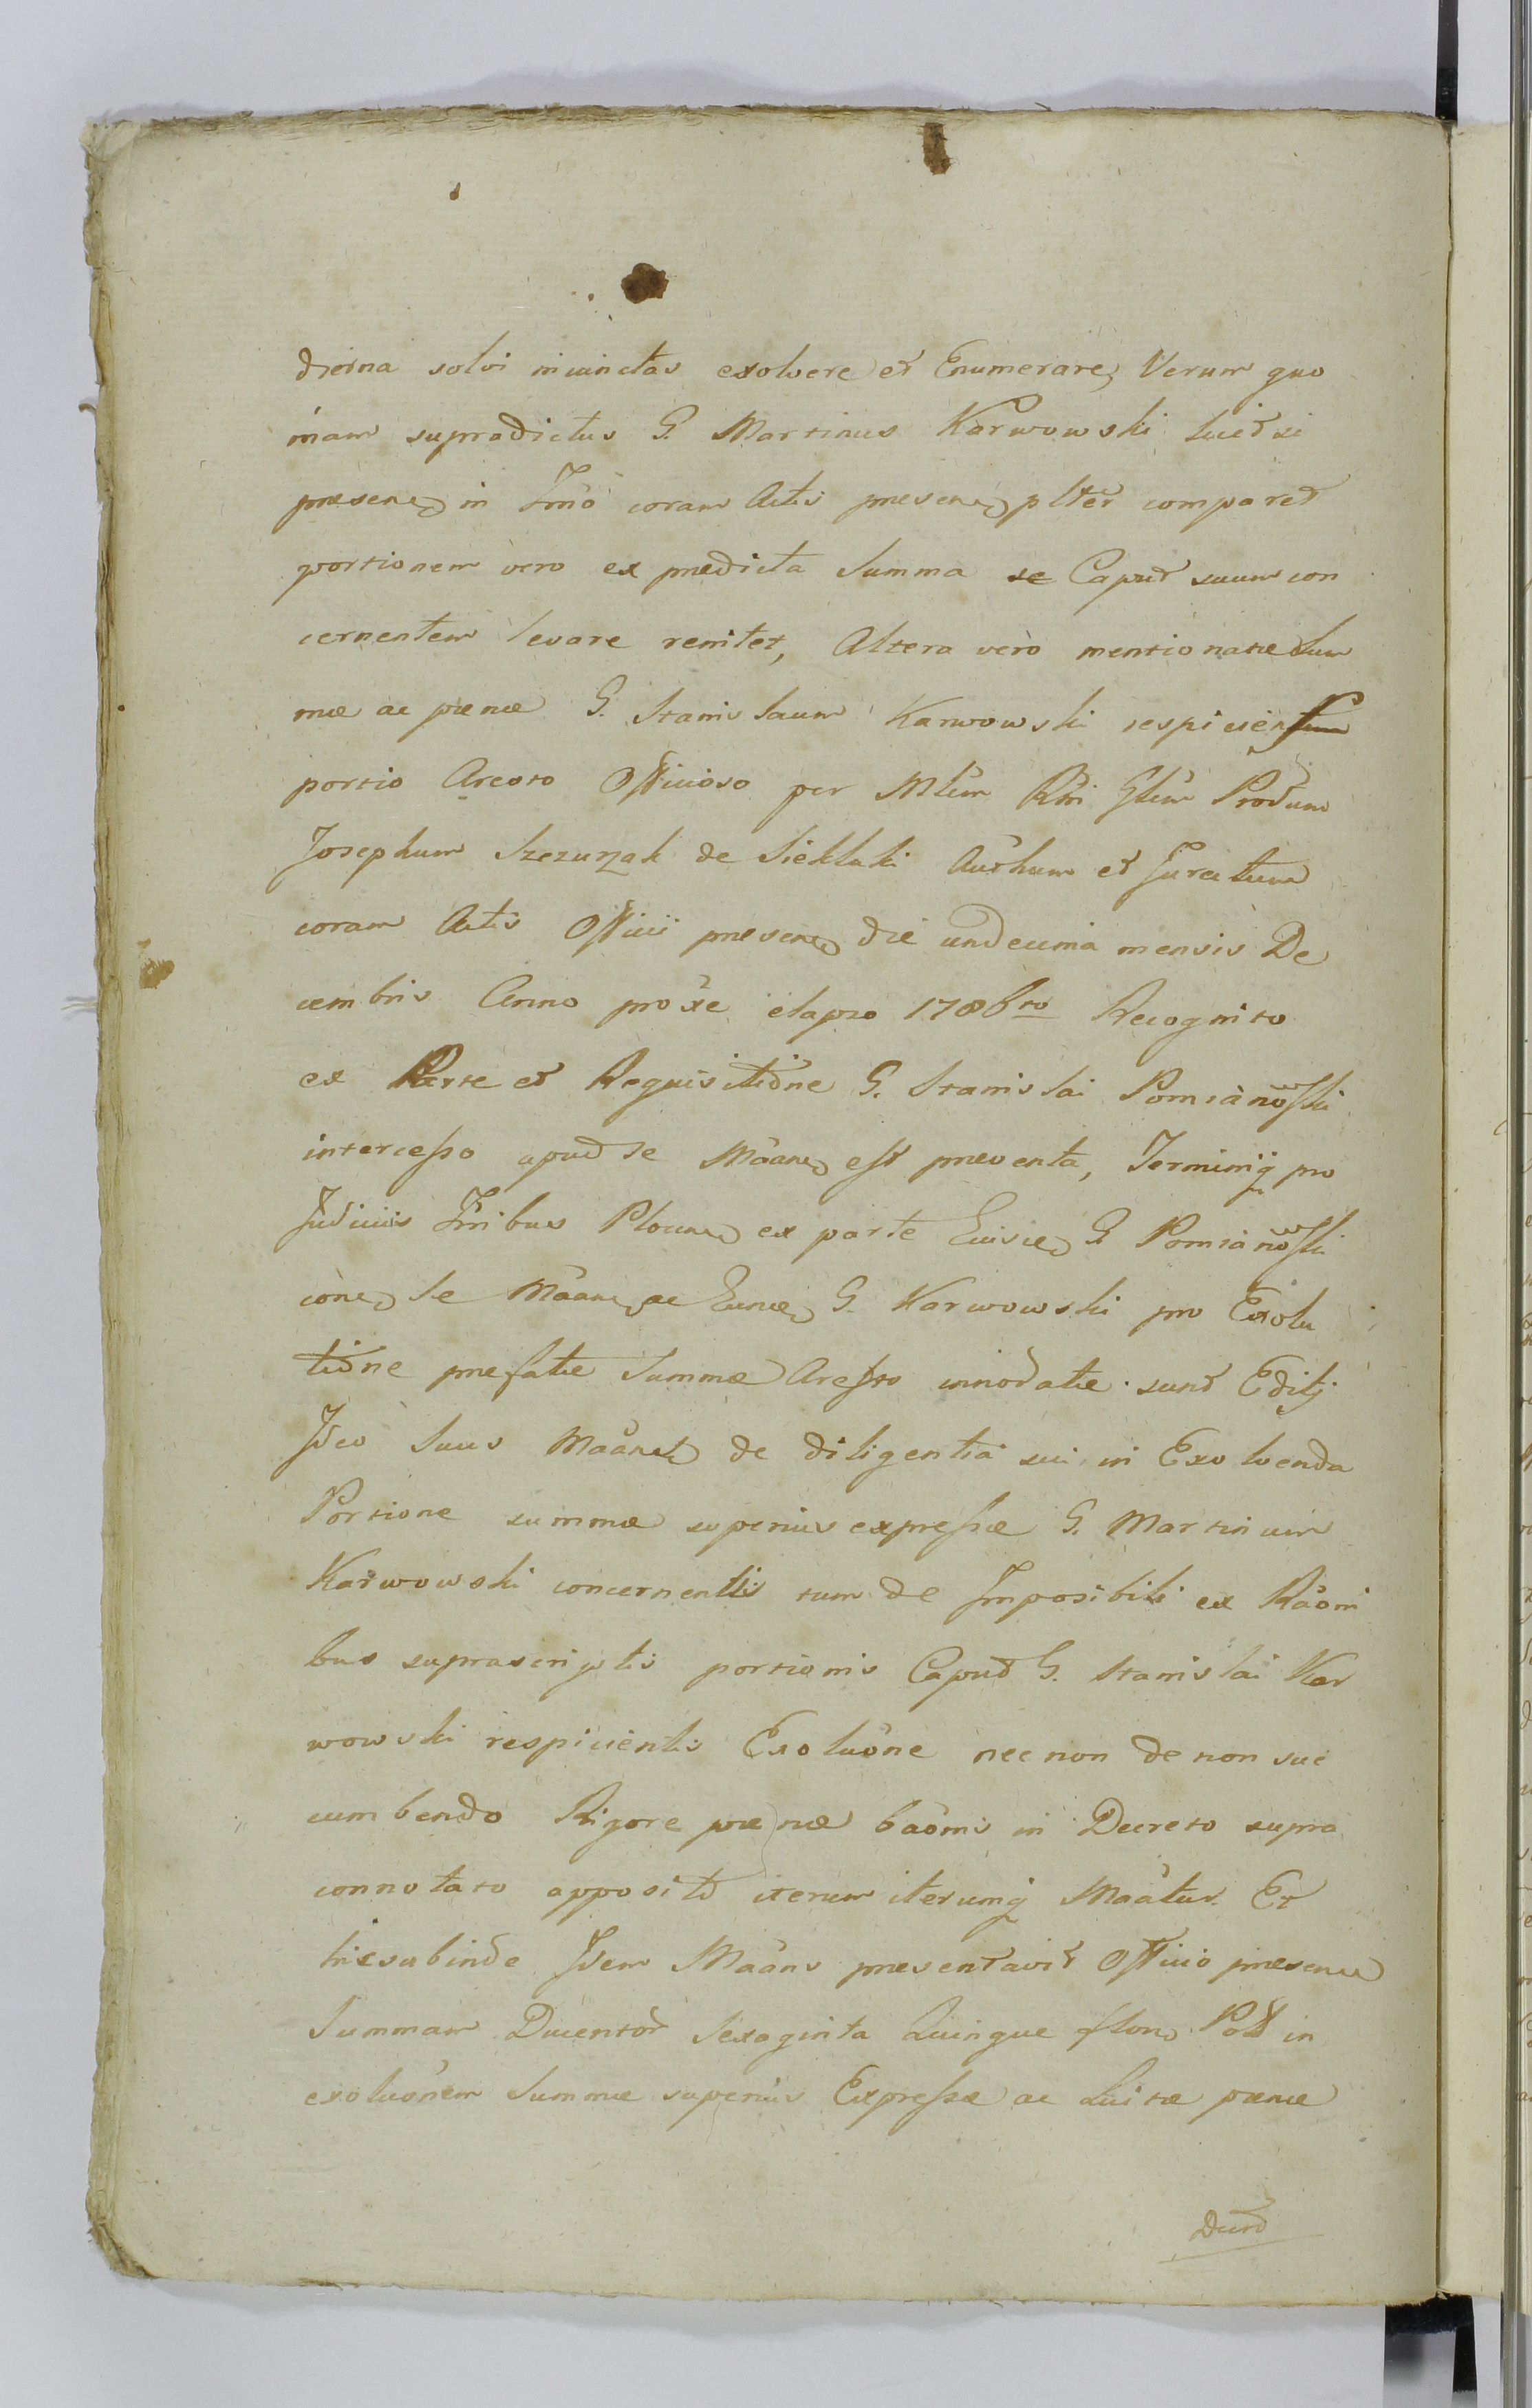 dierna solvi iniunctas exolvere et Enumerare, Verum quo
niam supradictus G. Martinus Karwowski licet se
presene in Trno coram Actis presene plter comparet
portionem vero ex prædicta Summa se Caput suum con
cernentem levare renitet, Altera vero mentionatæ Sum
mæ ac pœnæ G. Stanislaum Karwowski respiciens
portio Aresto Officioso per Mlem Rni Glem Produm
Josephum Szczurzak de Sieklaki Authum et Juratum
coram Actis Officii presene die undecima mensis De
cembris Anno proxe elapso 1786to Recognito
ex Parte et Requisitione G. Stanislai Pomianowski
intercesso apud se Maane est præventa, Terminiq pro
Judiciis Trribus Plocen ex parte Eiusde G. Pomianowski
cone se Maane ac G. Karwowski pro Exolu
tione prefatæ Summæ Aresto innodatæ sunt Editi
Ideo Suus Maanes de diligentia sui in Exolvenda
Portione summæ superius expressæ G. Martinum
Karwowski concernentis tum de Imposibili ex Raoni
bus suprascriptis portionis Caput G. Stanislai Kar
wowski respicientis Exoluone nec non de non suc
cumbendo Rigore pœnæ baonis in Decreto supra
connotato apposito iterum iterumq Maatur. Et
hicsubinde Idem Maans presentavit Officio presene
Summam Ducentor Sexaginta Quinque flon Poll in
exoluonem Summæ superius Expressæ ac Luitæ pœnæ